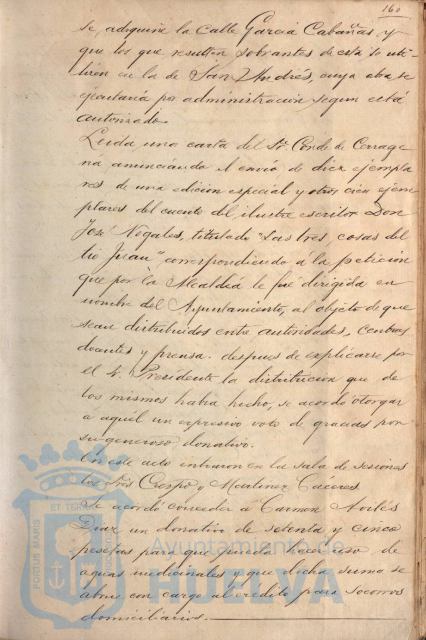 160
se, adquiere la Calle García Cabañas, y
que los que resulten sobrantes de esta se uti-
licen en la de San Andrés, cuya obra se
ejecutaría por administracion segun está
autorizado.
Leida una carta del Sr. Conde de Cerrage-
ría anunciando el envío de diez ejempla-
res de una edicion especial y otros cien ejem-
plares del cuento del ilustre escritor Don
José Nogales, titulado "Las tres cosas del
tio Juan", correspondiendo á la peticion
que por la Alcaldía le fue dirigida en
nombre del Ayuntamiento, al objeto de que
sean distribuidos entre autoridades, centros
docentes y prensa. despues de explicarse por
el Sr. Presidente la distribucion que de
los mismos habia hecho, se acordó otorgar
a aquél un expresivo voto de gracias por
su generoso donativo.
En este acto entraron en la sala de sesiones
los Sres Crespo y Martinez Cáceres
Se acordó conceder á Carmen Avilés
Diaz un donativo de setenta y cinco
pesetas para que pueda hacer uso de
aguas medicinales y que dicha suma se
abone con cargo al crédito para socorros
domiciliarios.
PORTUS MARIS ET TERRAE CUSTODIA
Ayuntamiento de
HUELVA